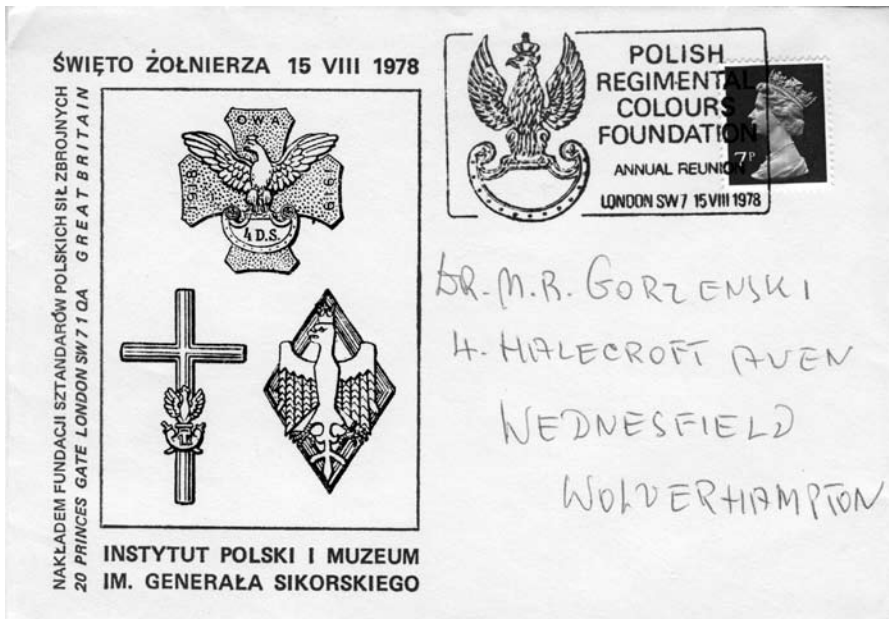 ŚWIĘTO ŻOŁNIERZA 15 VIII 1978
NAKŁADEM FUNDACJI SZTANDARÓW POLSKICH SIŁ ZBROJNYCH
20 PRINCES GATE LONDON SW 7 1 QA GREAT BRITAIN
OWA
1918
1919
4 D.S.
INSTYTUT POLSKI I MUZEUM
IM. GENERAŁA SIKORSKIEGO
POLISH
REGIMENTAL
COLOURS
FOUNDATION
ANNUAL REUNION
LONDON SW 7 15 VIII 1978
7P
DR. M. B. GORZENSKI
4. HALECROFT AVEN
WEDNESFIELD
WOLVERHAMPTON